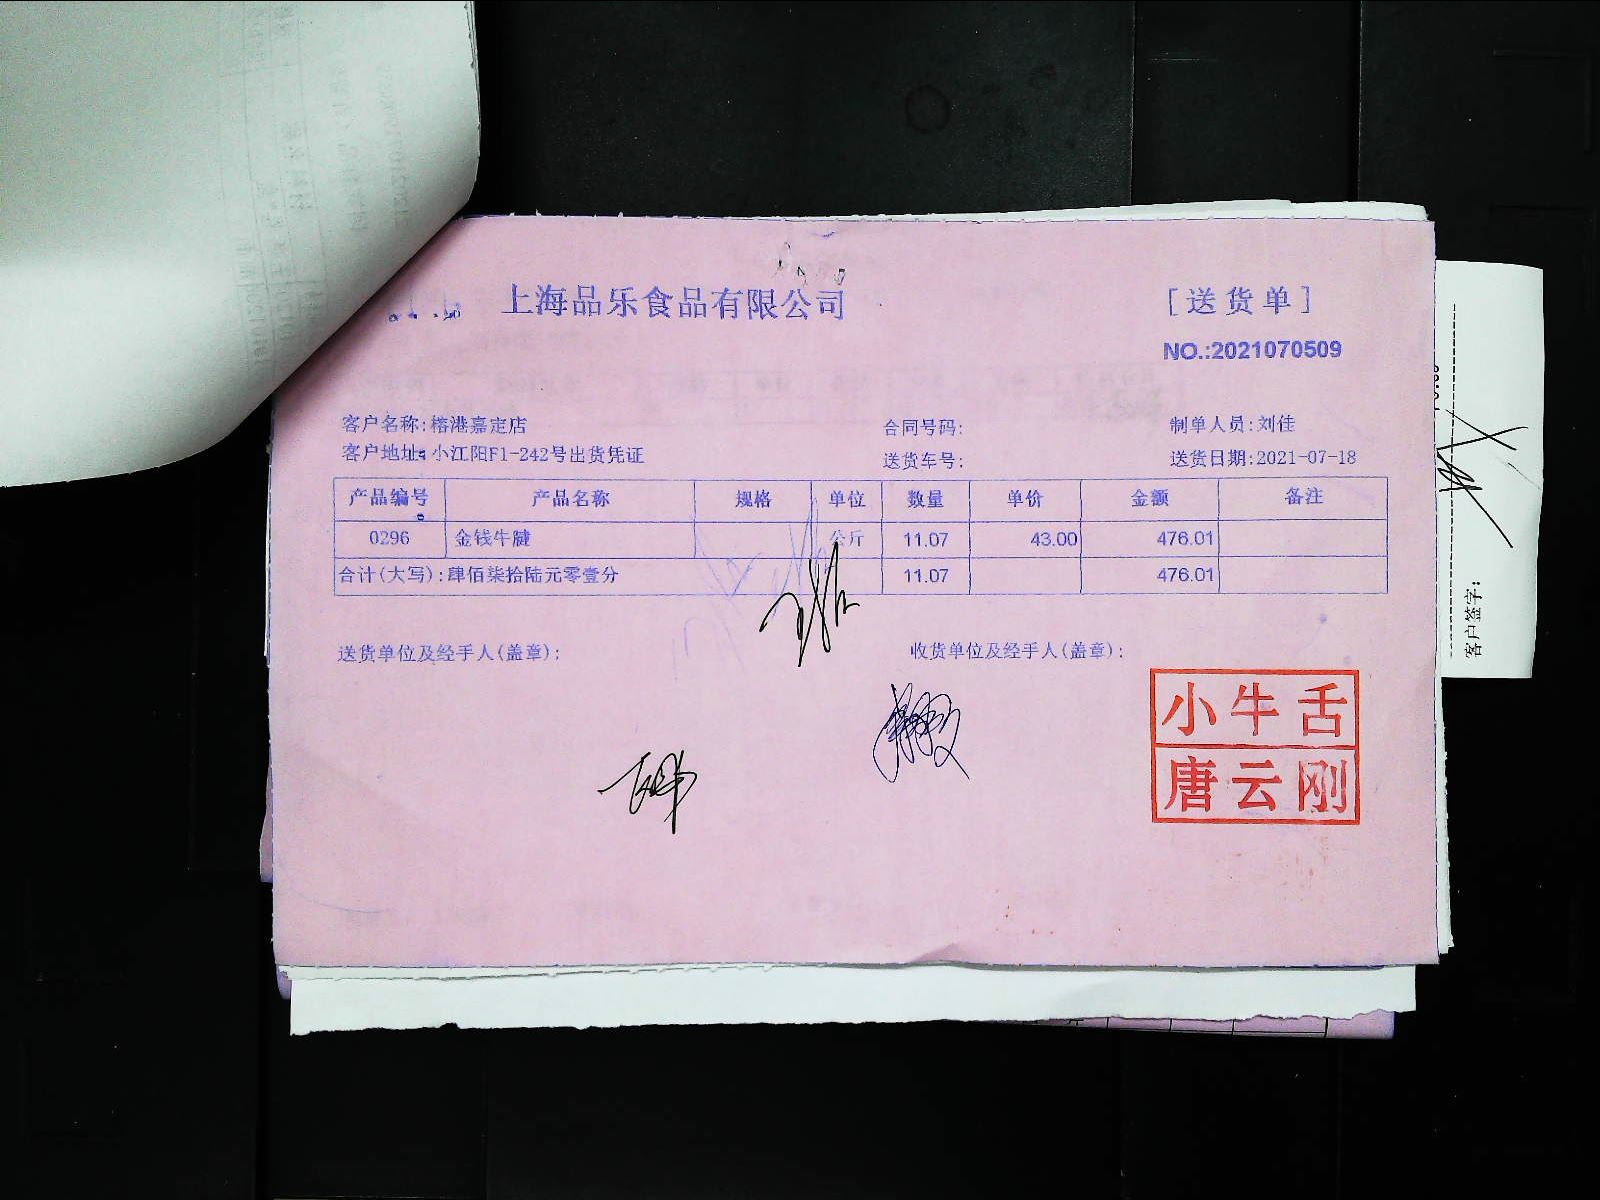 上海品乐食品有限公司
[送货单]
NO.:2021070509
客户名称:榕港嘉定店 合同号码: 制单人员:刘佳
客户地址:小江阳F1-242号出货凭证 送货车号: 送货日期:2021-07-18
产品编号 产品名称 规格 单位 数量 单价 金额 备注
0296 金钱牛腱 公斤 11.07 43.00 476.01
合计(大写):肆佰柒拾陆元零壹分 11.07 476.01
送货单位及经手人(盖章): 收货单位及经手人(盖章):
小牛舌
唐云刚
客户签字: